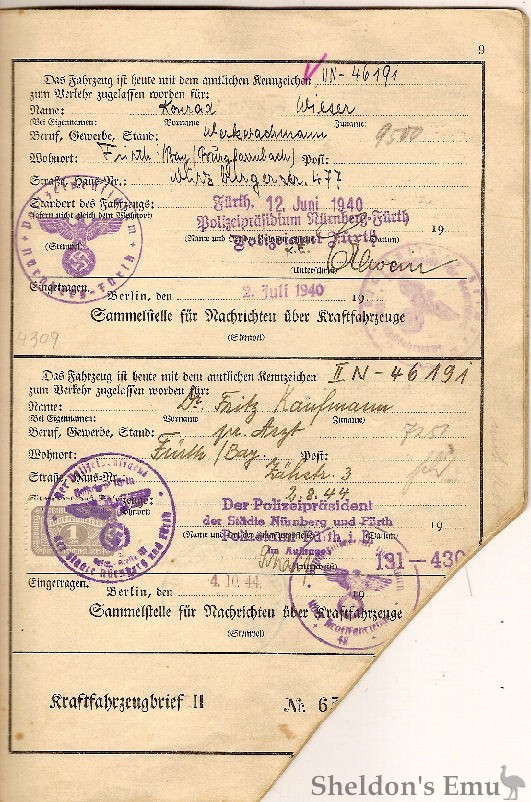 9
Das Fahrzeug ist heute mit dem amtlichen Kennzeichen IIN-46191
zum Verkehr zugelassen worden für:
Name: Konrad Wieser
(Bei Eigennamen: Vorname Zuname)
Beruf, Gewerbe, Stand: 9500
Wohnort: Fürth/Bay(Burgfarrnbach) Post:
Straße, Haus-Nr.: Würzburgerstr. 477
Standort des Fahrzeugs: Fürth, 12. Juni 1940
(sofern nicht gleich dem Wohnort)
Polizeipräsidium Nürnberg-Fürth
19
(Stempel) Polizeiamt Fürth (Datum)
(Unterschrift)
Eingetragen. Berlin, den 2. Juli 1940 19
Sammelstelle für Nachrichten über Kraftfahrzeuge
(Stempel)
4309
Das Fahrzeug ist heute mit dem amtlichen Kennzeichen II N-46191
zum Verkehr zugelassen worden für:
Name: Dr. Fritz Kaufmann
(Bei Eigennamen: Vorname Zuname)
Beruf, Gewerbe, Stand: pr. Arzt
Wohnort: Fürth/Bay Post:
Straße, Haus-Nr.: 3
2.8.44
Der Polizeipräsident
der Städte Nürnberg und Fürth
19
Im Auftrage
131-430
Eingetragen. Berlin, den 4.10.44. 19
Sammelstelle für Nachrichten über Kraftfahrzeuge
(Stempel)
Kraftfahrzeugbrief II № 65
Sheldon's Emu